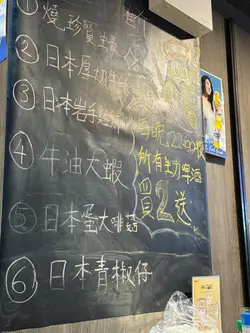 ① 燒珍寶蠔
② 日本厚切牛
③ 日本岩手雞
④ 牛油大蝦
⑤ 日本蛋大啡菇
⑥ 日本青椒仔
每晚 22:00後
所有生力啤酒
買2送